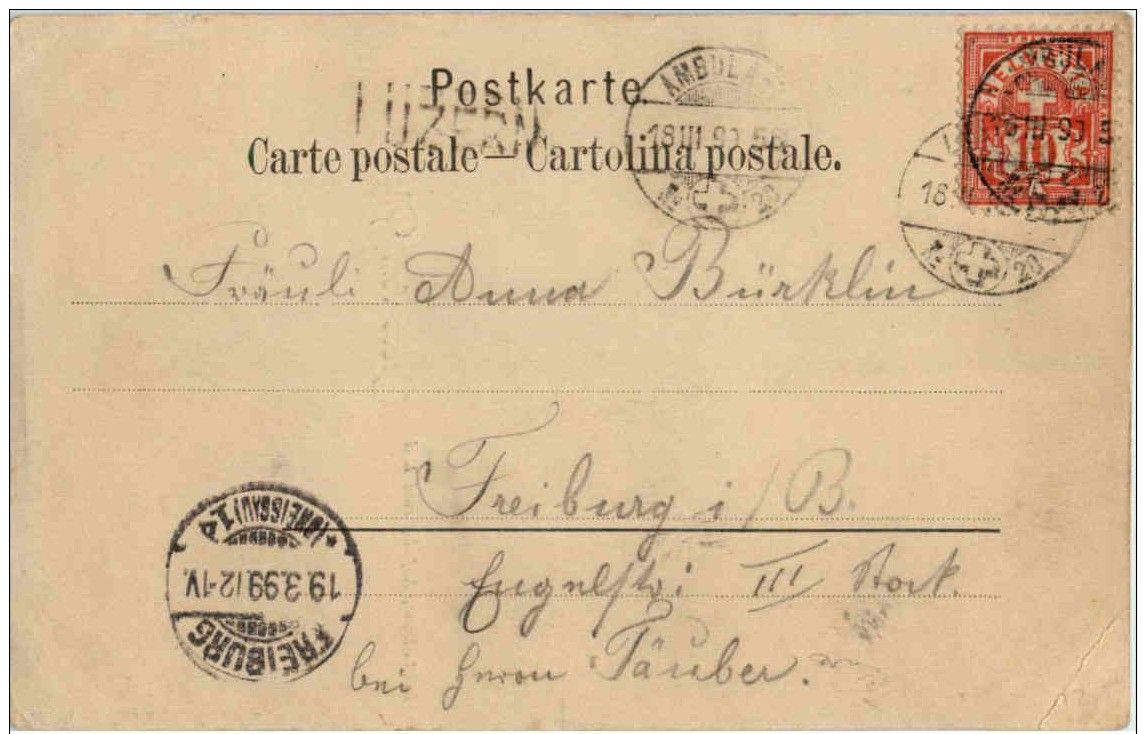 Postkarte
LUZERN
Carte postale — Cartolina postale.
AMBULANT
18 III 99
No 20
HELVETIA
10
18
No 20
Fräuli. Anna Bürklin
Freiburg i/B.
Engelstr: III Stock.
bei Herrn Täuber.
FREIBURG
19.3.99.12-1V.
*(BREISGAU)1A